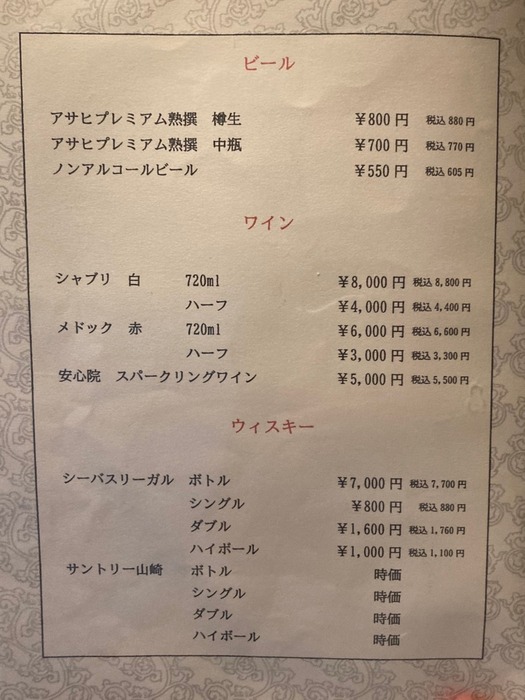 ビール
アサヒプレミアム熟撰 樽生 ¥800円 税込880円
アサヒプレミアム熟撰 中瓶 ¥700円 税込770円
ノンアルコールビール ¥550円 税込605円
ワイン
シャブリ 白 720ml ¥8,000円 税込8,800円
ハーフ ¥4,000円 税込4,400円
メドック 赤 720ml ¥6,000円 税込6,600円
ハーフ ¥3,000円 税込3,300円
安心院 スパークリングワイン ¥5,000円 税込5,500円
ウィスキー
シーバスリーガル ボトル ¥7,000円 税込7,700円
シングル ¥800円 税込880円
ダブル ¥1,600円 税込1,760円
ハイボール ¥1,000円 税込1,100円
サントリー山崎 ボトル 時価
シングル 時価
ダブル 時価
ハイボール 時価